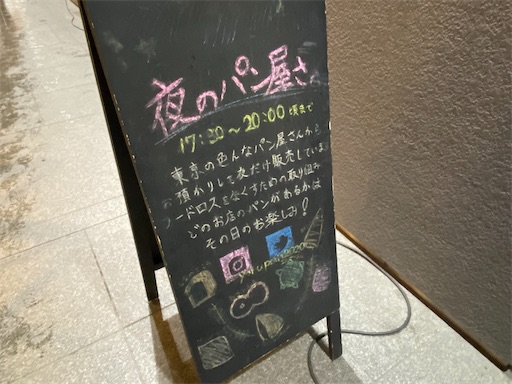 夜のパン屋さん
17:30〜20:00 頃まで
東京の色んなパン屋さんから
お預かりして夜だけ販売しています
フードロスをなくすための取り組み
どのお店のパンがあるかは
その日のお楽しみ!